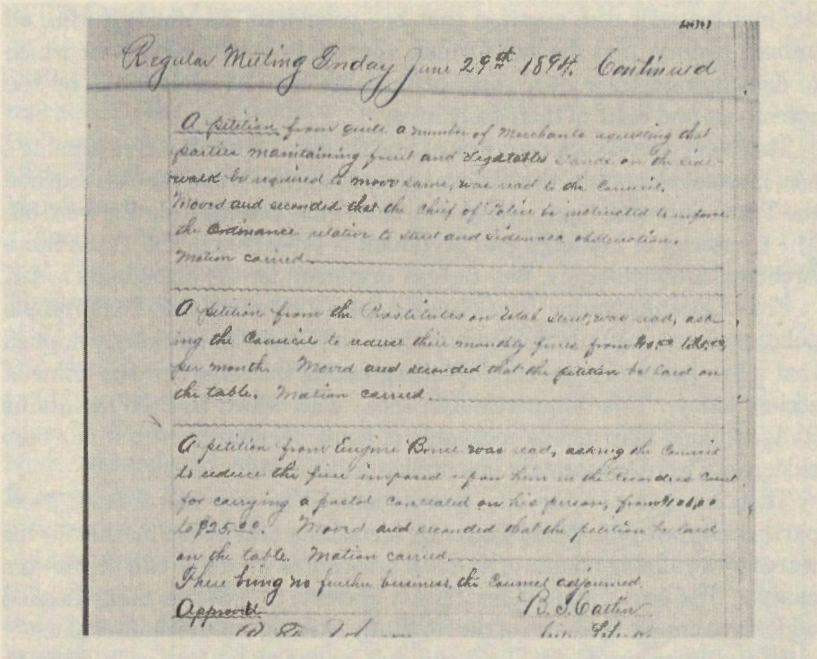 Regular Meeting Friday June 29th 1894. Continued
A petition from quite a number of Merchants requesting that
parties maintaining fruit and Vegetables stands on the side
walk be required to move same, was read to the Council.
Moved and seconded that the Chief of Police be instructed to
the Ordinance relative to street and sidewalk obstruction.
Motion carried
A petition from the Prostitutes on Utah Street, was read, ask
ing the Council to reduce their monthly fines from
per month. Moved and seconded that the petition be laid on
the table. Motion carried.
A petition from Eugene was read, asking the Council
to reduce the fine imposed upon him in the Recorders Court
for carrying a pistol concealed on his person, from $100.00
to $25.00. Moved and seconded that the petition be laid
on the table. Motion carried.
There being no further business, the Council adjourned.
Approved B.S. Catlin